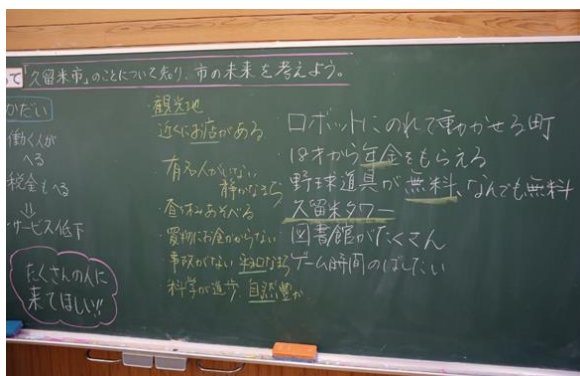 って
「久留米市」のことについて知り、市の未来を考えよう。
かだい
働く人が
へる
税金もへる
⇓
サービス低下
たくさんの人に
来てほしい!!
観光地
近くにお店がある
有名人がいない
静かなまち
昼休みあそべる
買物にお金がかからない
事故がない 和口なまち
科学が進歩 自然豊か
ロボットにのれて動かせる町
18才から年金をもらえる
野球道具が無料、なんでも無料
久留米タワー
図書館がたくさん
ゲーム時間のばしたい